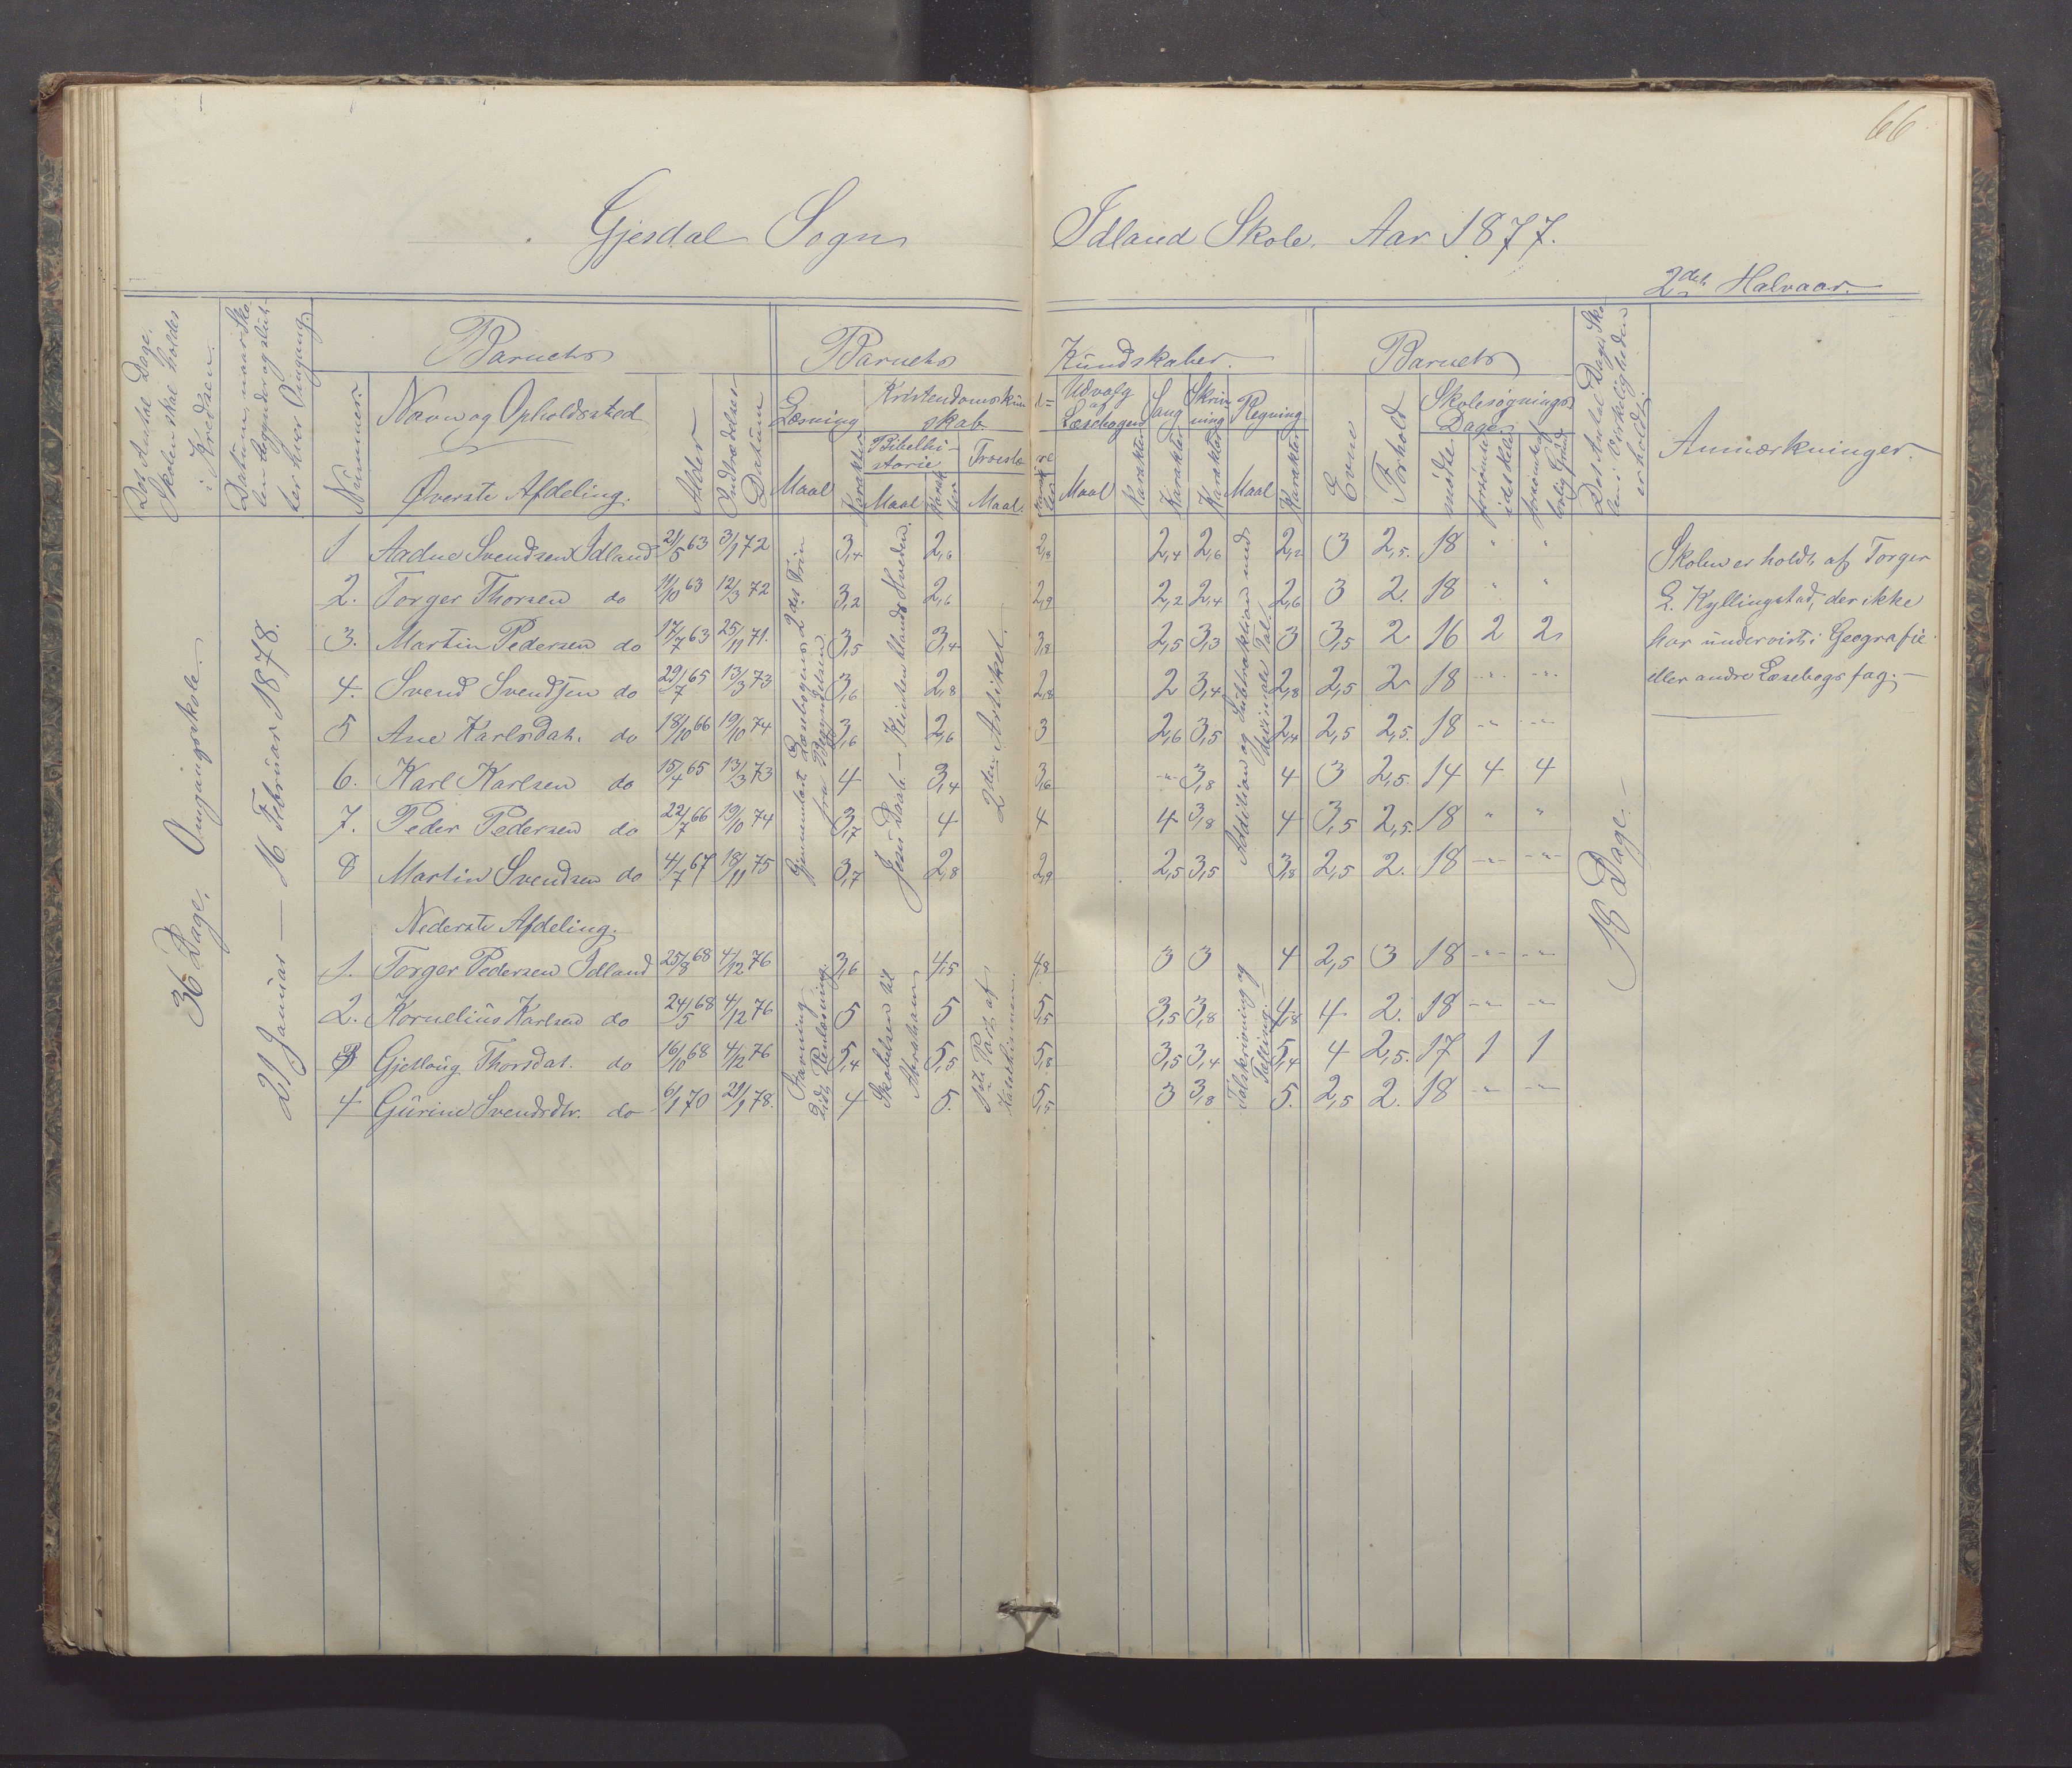 66
Gjesdal Sogn
Idland Skole. Aar 1877.
2det Halvaar.
Det Antal Dage, Skolen skal holdes i Kredsen.
Datum, naar Skolen begynder og slutter hver Omgang.
Barnets
Barnets
Kundskaber.
Barnets
Det Antal Dage Skolen i Virkeligheden er holdt.
Anmærkninger.
Nummer.
Navn og Opholdssted
Øverste Afdeling.
Alder
Indtrædelses Datum
Læsning
Kristendomskundskab.
Udvalg af Læsebogen
Sang
Skrivning
Regning
Evne
Forhold
Skolesøgnings Dage.
Bibelhistorie
Troeslære
mødte
forsømte i det Hele
forsømt af lovlig Grund
Maal
Karakter
Maal
Karakter
Maal
Karakter
Maal
Karakter
Karakter
Karakter
Maal
Karakter
36 Dage. Omgangsskole.
21 Januar — 16 Februar 1878.
Gjennemlæst Læsebogens 2det Trin fra Begyndelsen
Jesu Daab — Klinten blandt Hveden.
2den Artikel.
Addition og Subtraktion med ubenævnte Tal
18 Dage. —
1 Aadne Svendsen Idland 21/5 63 3/1 72 3,4 2,6 2,8 2,4 2,6 2,2 3 2,5. 18 " "
2. Torger Thorsen do 11/10 63 12/3 72 3,2 2,6 2,9 2,2 2,4 2,6 3 2. 18 " "
3. Martin Pedersen do 17/7 63 25/11 71. 3,5 3,4 3,8 2,5 3,3 3 3,5 2 16 2 2
4. Svend Svendsen do 29/7 65 13/3 73 3,6 2,8 2,8 2 3,4 2,8 2,5 2 18 -"- -"-
5 Ane Karlsdat. do 18/10 66 19/10 74 3,6 2,6 3 2,6 3,5 2,4 2,5 2,5. 18 -"- -"-
6. Karl Karlsen do 15/4 65 13/3 73 4 3,4 3,6 -"- 3,8 4 3 2,5. 14 4 4
7. Peder Pedersen do 22/7 66 19/10 74 3,7 4 4 4 3,8 4 3,5 2,5. 18 " "
8 Martin Svendsen do 4/7 67 18/11 75 3,7 2,8 2,9 2,5 3,5 3,8 2,5 2. 18 -"- -"-
Skolen er holdt af Torger
L. Kyllingstad, der ikke
har undervist i Geografie
eller andre Læsebogsfag. —
Nederste Afdeling.
Stavning lidt Renlæsning.
Skabelsen til Abraham
1ste Part af Katekismen.
Talskrivning og Tælling. —
1. Torger Pedersen Idland 25/8 68 4/12 76 3,6 4,5 4,8 3 3 4 2,5 3 18 -"- -"-
2. Kornelius Karlsen do 24/5 68 4/12 76 5 5 5,5 3,5 3,8 4,8 4 2. 18 -"- -"-
3 Gjetloug Thorsdat. do 16/10 68 4/12 76 5,4 5,5 5,8 3,5 3,4 5,4 4 2,5. 17 1 1
4 Gurine Svendsdtr. do 6/1 70 21/1 78. 4 5. 5,5 3 3,8 5. 2,5 2. 18 -"- -"-